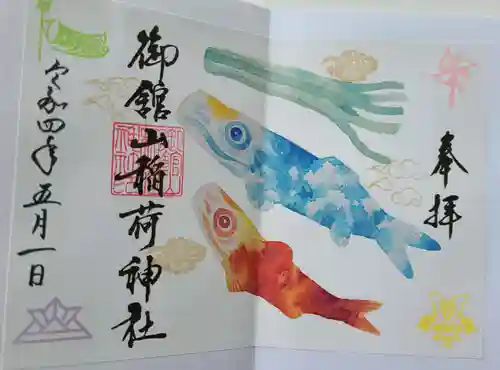 奉拝
御舘山稲荷神社
令和四年五月一日